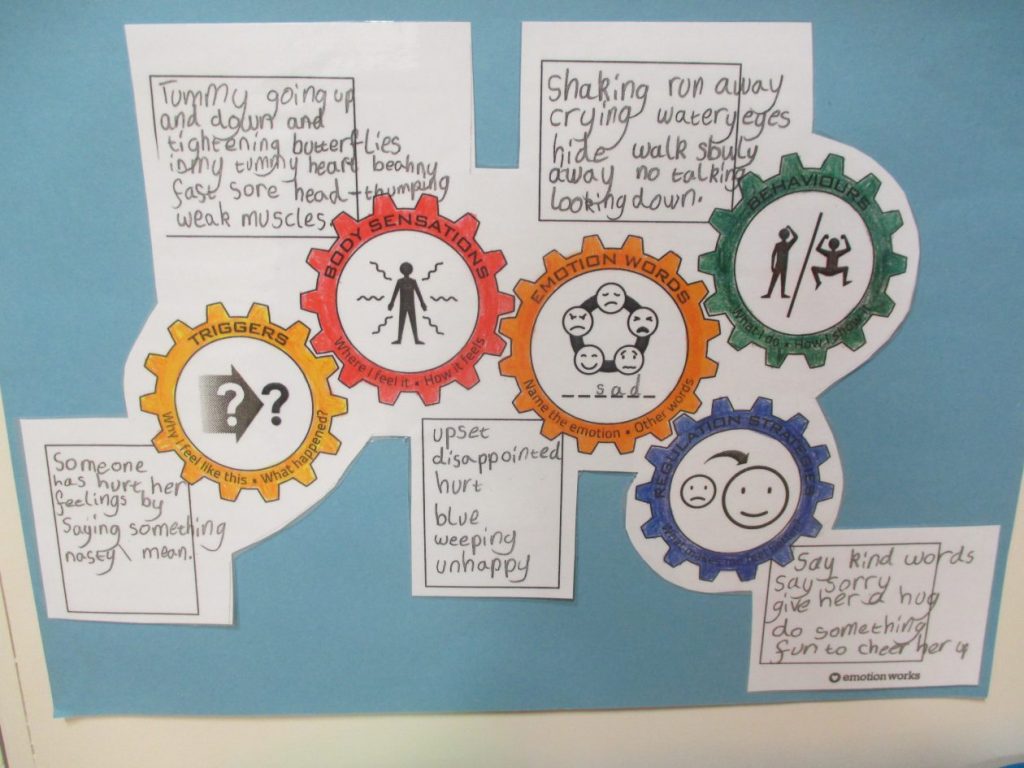 Tummy going up
and down and
tightening butterflies
in my tummy heart beating
fast sore head-thumping
weak muscles
Shaking run away
crying watery eyes
hide walk slowly
away no talking
looking down.
BODY SENSATIONS
Where I feel it • How it feels
BEHAVIOURS
What I do • How I show it
EMOTION WORDS
sad
Name the emotion • Other words
TRIGGERS
? ?
Why I feel like this • What happened?
REGULATION STRATEGIES
What makes me feel
Someone
has hurt her
feelings by
Saying something
nasey \ mean.
upset
disappointed
hurt
blue
weeping
unhappy
Say kind words
say sorry
give her a hug
do something
fun to cheer her up
emotion works